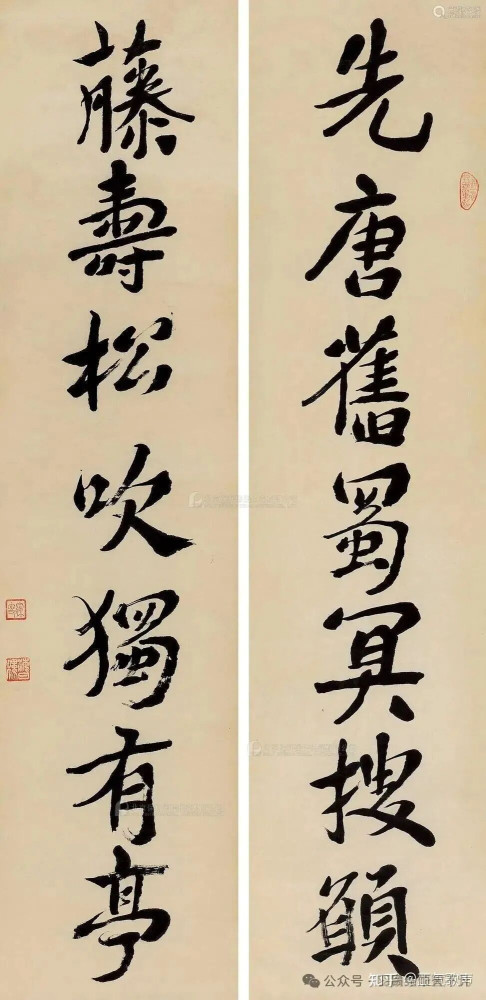 先唐舊蜀冥搜願
藤壽松吹獨有亭
公众号
知乎